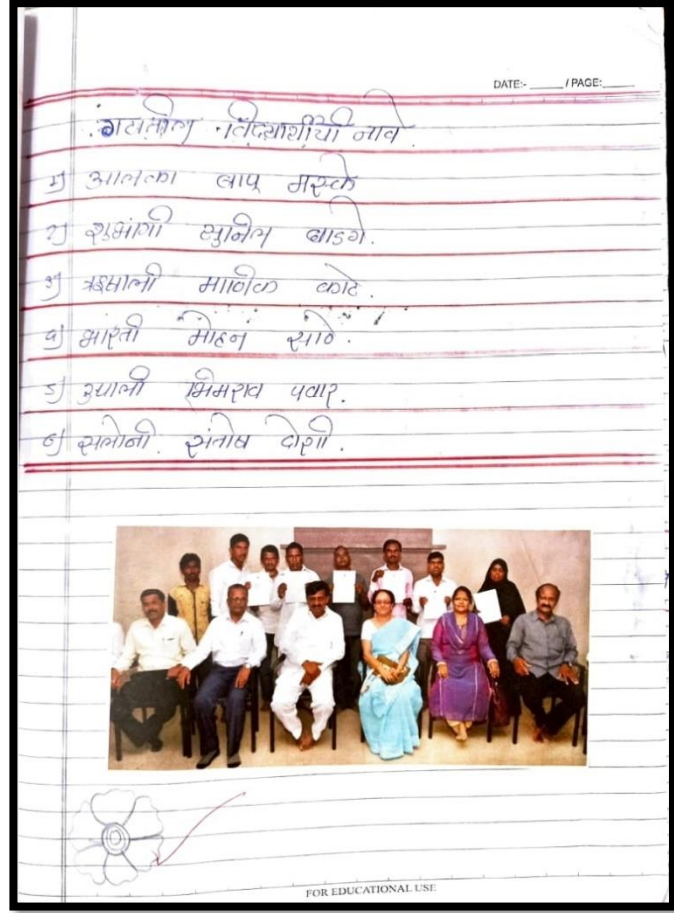 DATE:- ______ / PAGE:______
गटातील विद्यार्थीची नावे
१) आलका बापू मस्के
२) शुभांगी सुनिल घाडगे.
३) माणिक काटे.
४) भारती मोहन साठे.
५) रुपाली भिमराव पवार.
६) सलोनी. संतोष दोशी.
FOR EDUCATIONAL USE